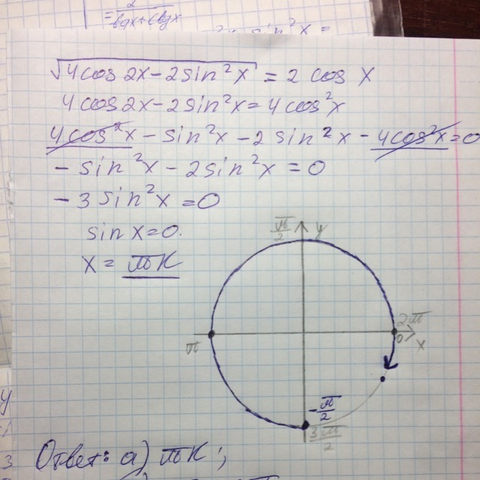 √4cos2x-2sin²x = 2 cos x
4cos2x-2sin²x=4cos²x
4cos²x - sin²x - 2 sin²x - 4cos²x=0
- sin²x - 2sin²x = 0
- 3 sin²x = 0
sin x = 0.
x = πK
π/2
y
π
2π
0
x
-π/2
3π/2
Ответ: a) πK;